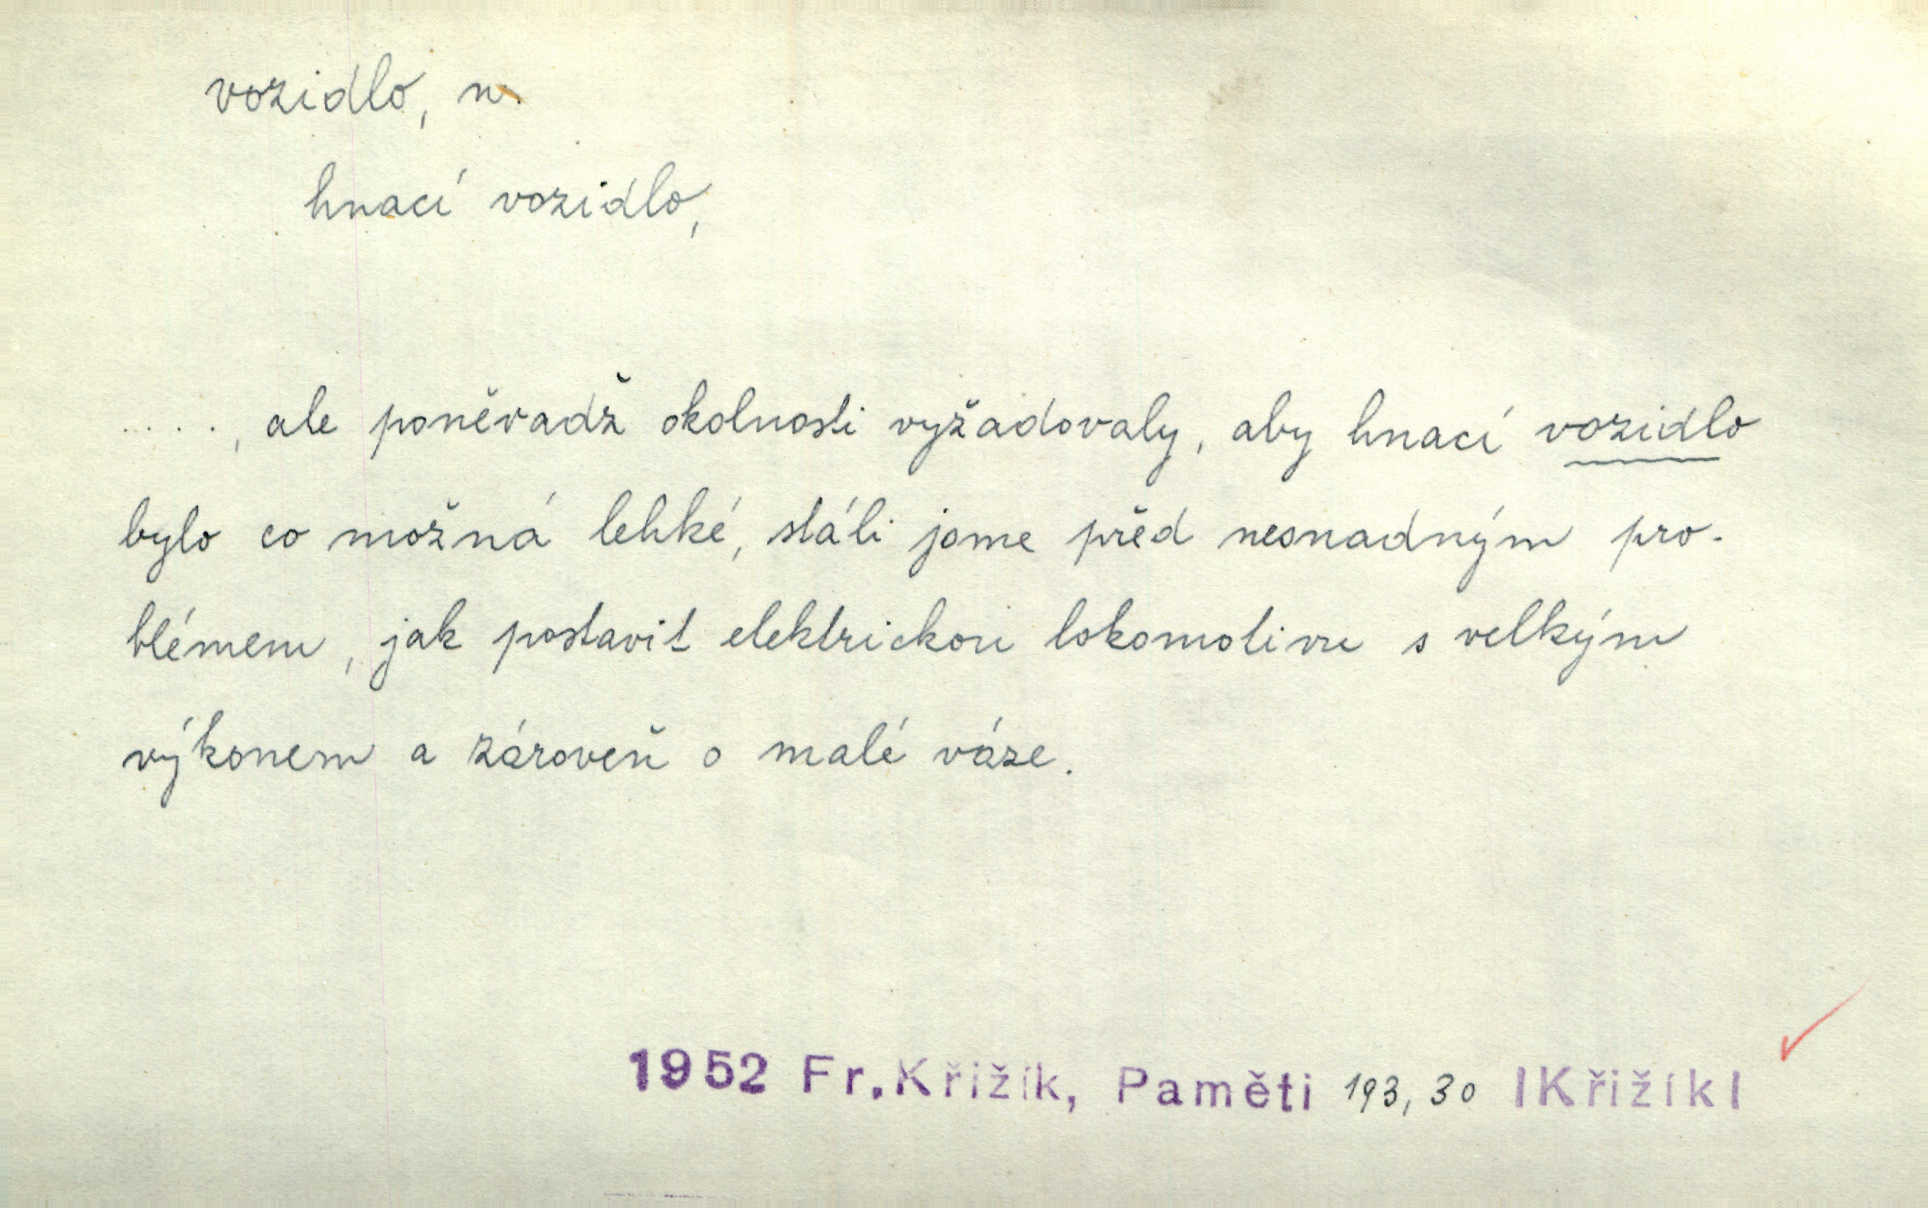 vozidlo, n.
hnací vozidlo,
...., ale poněvadž okolnosti vyžadovaly, aby hnací vozidlo
bylo co možná lehké, stáli jsme před nesnadným pro-
blémem, jak postavit elektrickou lokomotivu s velkým
výkonem a zároveň o malé váze.
1952 Fr.Křižík, Paměti 193, 30 |Křižík|